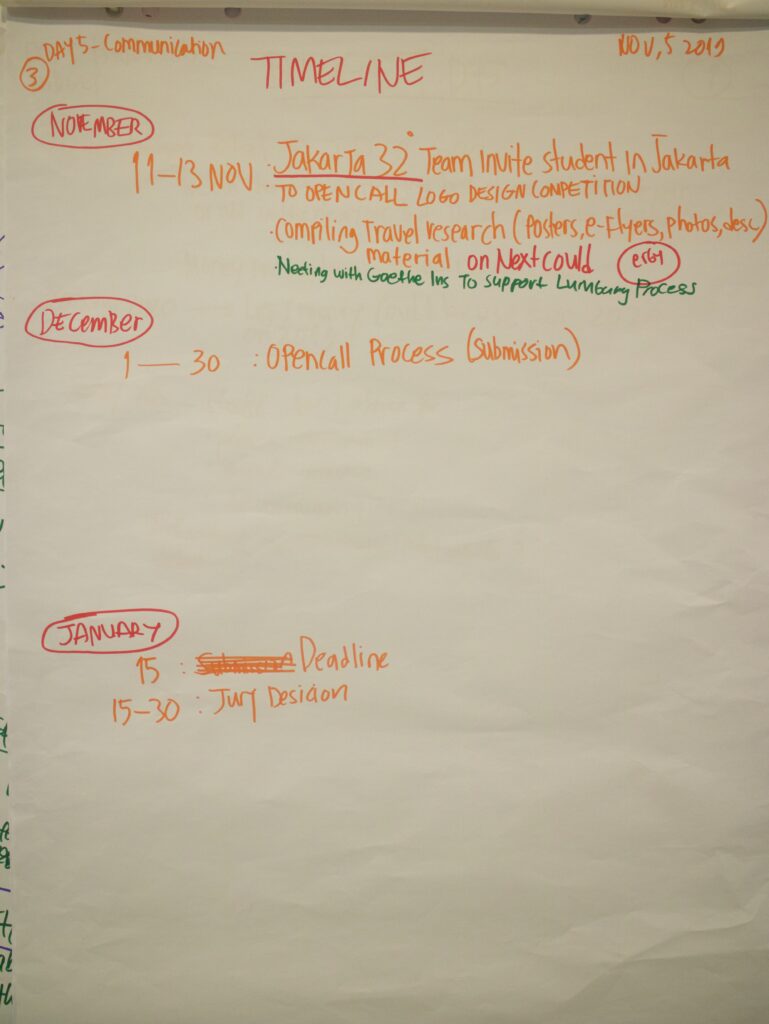 DAY 5 - Communication
NOV, 5 2019
3
TIMELINE
NOVEMBER
11-13 NOV : Jakarta 32° Team Invite student in Jakarta
TO OPENCALL LOGO DESIGN COMPETITION
· Compiling Travel research (Posters, e-Flyers, photos, desc)
material on Nextcould
· Meeting with Goethe Ins To Support Lumbung Process
DECember
1 — 30 : Opencall Process (Submission)
JANUARY
15 : Submission Deadline
15-30 : Jury Desicion